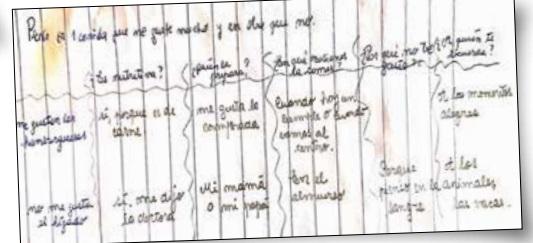 Pienso en 1 comida que me guste mucho y en otra que no.
¿Es nutritiva? ¿Quién la prepara? ¿En qué ocasiones la comes? ¿Por qué no te gusta? ¿A quién te recuerda?
me gustan las hamburguesas
sí, porque es de carne
me gusta la comprada
Cuando hay un cumple o cuando vamos al centro.
A los momentos alegres
no me gusta el hígado
sí, me dijo la doctora
Mi mamá o mi papá
En el almuerzo
Porque pienso en la sangre
A los animales, las vacas.